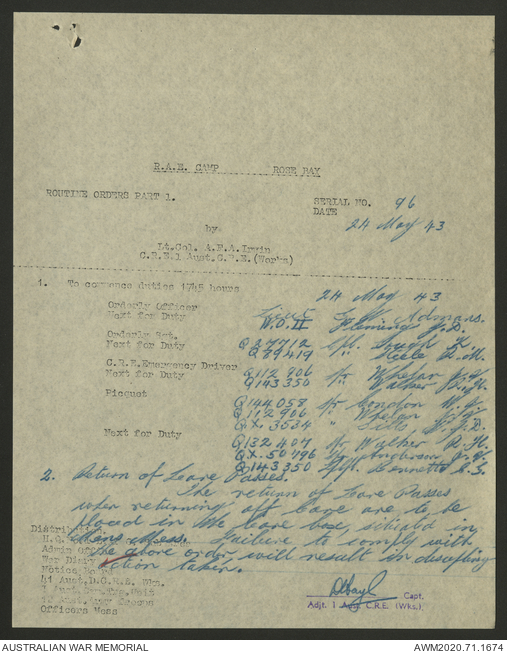 R.A.E. CAMP ROSE BAY
ROUTINE ORDERS PART 1.
SERIAL NO. 96
DATE
24 May 43
by
Lt.Col. A.F.A. Irwin
C.R.E. 1 Aust.C.R.E.(Works)
1. To commence duties 1745 hours
24 May 43
Orderly Officer Lieut F. W. Admans.
Next for Duty W.O. II Fleming J.D.
Orderly Sgt. Q27712 Cpl. Gough
Next for Duty Q29419 " Steele R. H.
C.R.E. Emergency Driver Q112906 Spr Whelan
Next for Duty Q143350 Spr Walker
Picquet Q144058 Spr London W.
Q112906 " Whelan
QX. 3534 "
Next for Duty Q132407 Spr Walker R. H.
QX. 50796 Spr Anderson
Q143350 Bennetts
2. Return of Leave Passes.
The return of Leave Passes
when returning off leave are to be
placed in the leave box, situated in
Mens Mess. Failure to comply with
the above order will result in
action taken.
Distribution
H.Q.
Admin
War Diary
Notice Board
41 Aust.D.C.R.E. Wks.
Officers Mess
Capt.
Adjt. 1 Aust. C.R.E. (Wks.).
AUSTRALIAN WAR MEMORIAL
AWM2020.71.1674